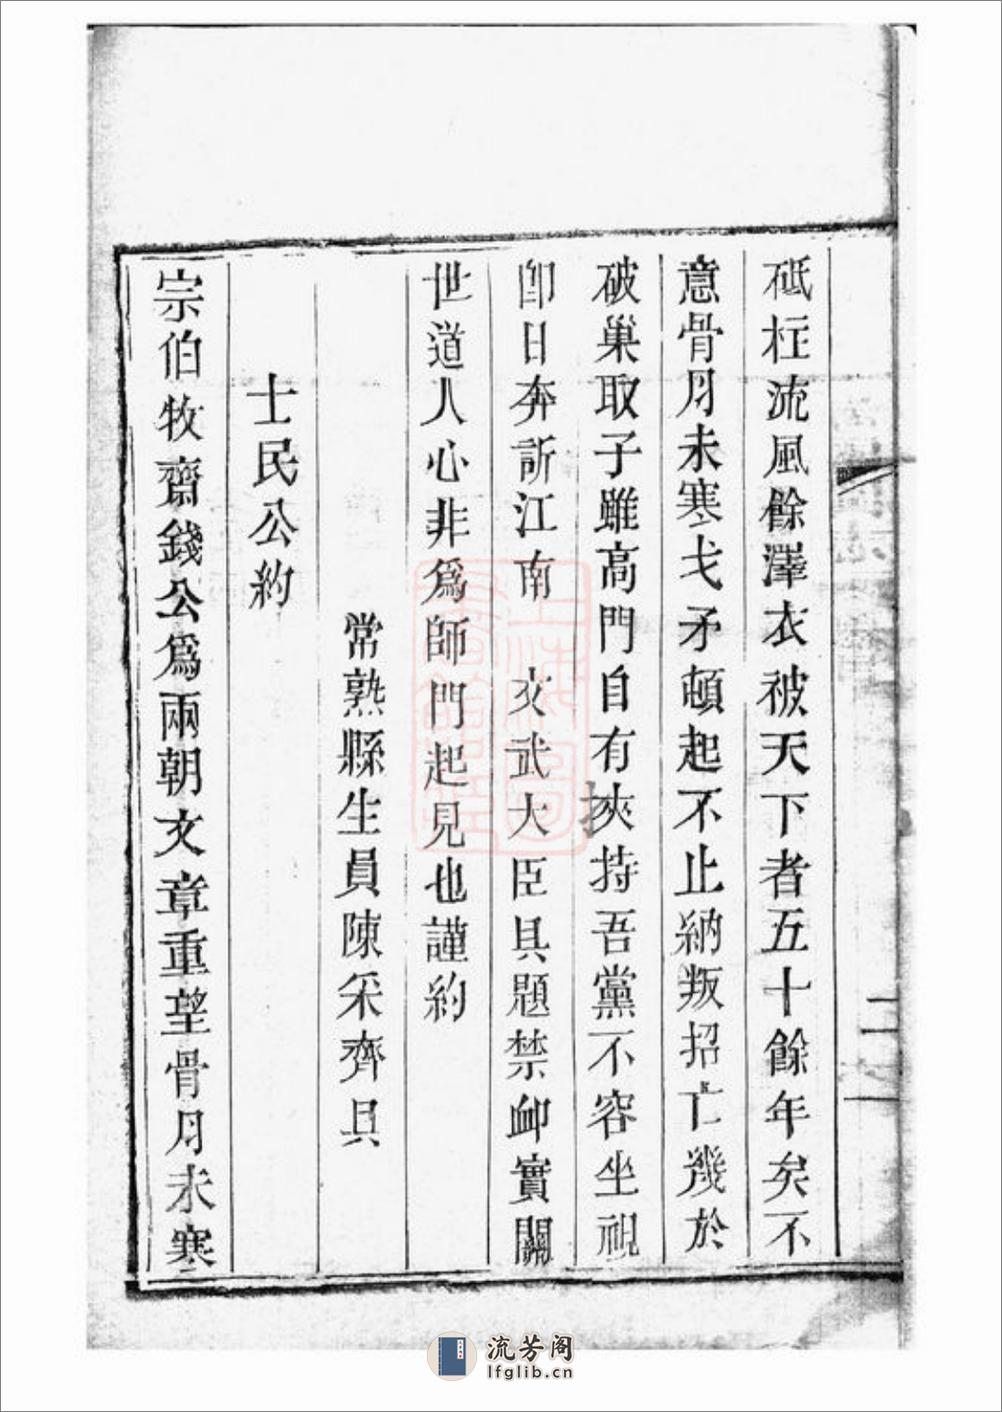 砥柱流風餘澤衣被天下者五十餘年矣不
意骨月未寒戈矛頓起不止納叛招亡幾於
破巢取子雖高門自有挾持吾黨不容坐視
卽日奔訴江南　文武大臣具題禁衈實關
世道人心非爲師門起見也謹約
常熟縣生員陳采齊具
士民公約
宗伯牧齋錢公爲兩朝文章重望骨月未寒
二
流芳阁
lfglib.cn